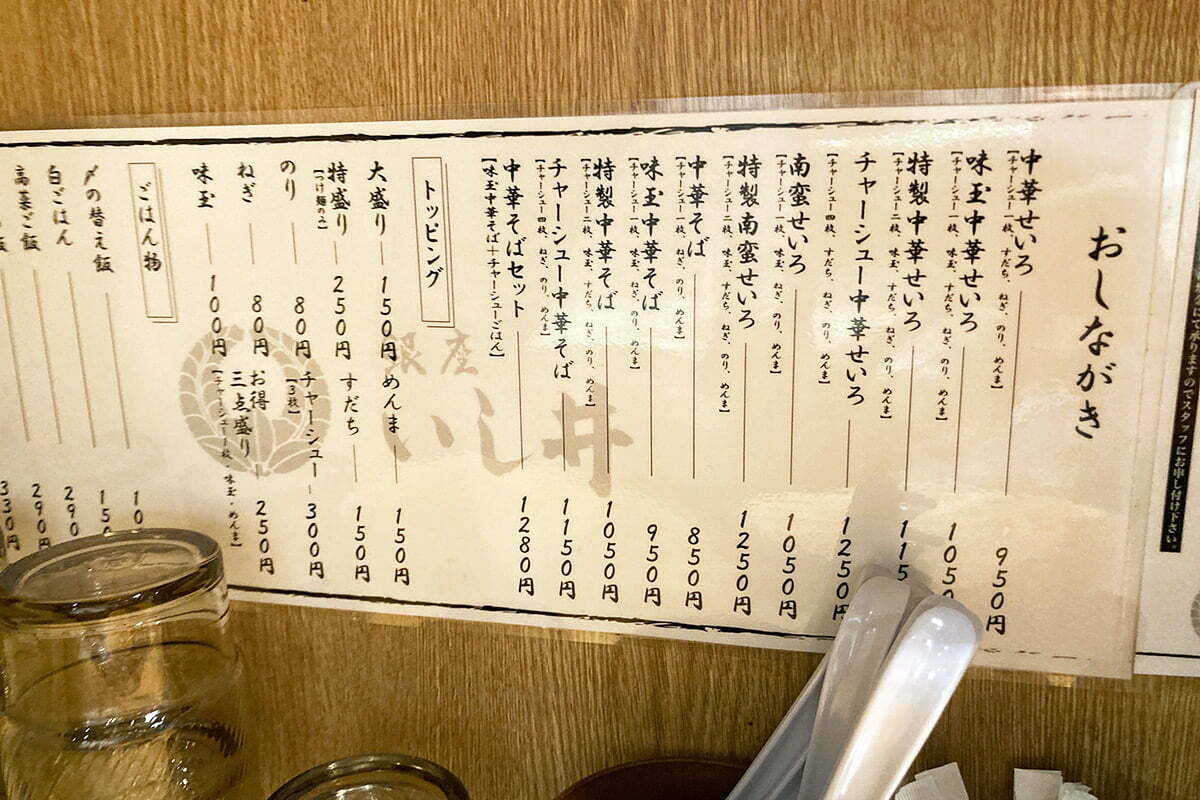 おしながき
中華せいろ 950円
【チャーシュー一枚、すだち、ねぎ、のり、めんま】
味玉中華せいろ 1050
【チャーシュー一枚、味玉、すだち、ねぎ、のり、めんま】
特製中華せいろ 115
【チャーシュー二枚、味玉、すだち、ねぎ、のり、めんま】
チャーシュー中華せいろ 1250円
【チャーシュー四枚、すだち、ねぎ、のり、めんま】
南蛮せいろ 1050円
【チャーシュー一枚、すだち、ねぎ、のり、めんま】
特製南蛮せいろ 1250円
【チャーシュー二枚、味玉、すだち、ねぎ、のり、めんま】
中華そば 850円
【チャーシュー一枚、ねぎ、のり、めんま】
味玉中華そば 950円
【チャーシュー一枚、味玉、ねぎ、のり、めんま】
特製中華そば 1050円
【チャーシュー二枚、味玉、すだち、ねぎ、のり、めんま】
チャーシュー中華そば 1150円
【チャーシュー四枚、ねぎ、のり、めんま】
中華そばセット 1280円
【味玉中華そば+チャーシューごはん】
トッピング
大盛り 150円
特盛り 250円
【つけ麺のみ】
のり 80円
ねぎ 80円
味玉 100円
めんま 150円
すだち 150円
チャーシュー 300円
【3枚】
お得三点盛り 250円
【チャーシュー1枚・味玉・めんま】
ごはん物
〆の替え飯 10
白ごはん 150
高菜ご飯 290
飯 290円
330円
銀座
いし井
りますのでスタッフにお申し付け下さい。